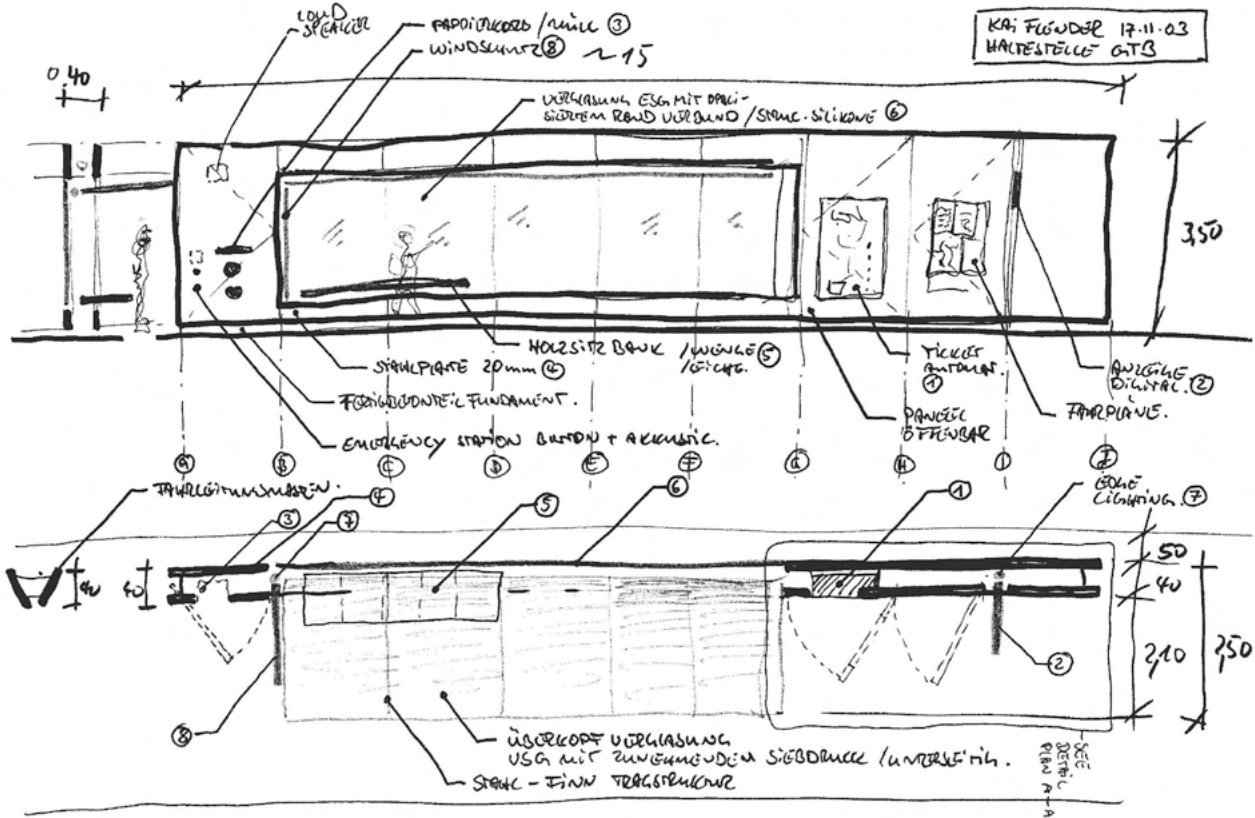 LOUD
SPEAKER
PAPPIERKORB / MÜLL ③
WINDSCHUTZ ⑧
~15
KAI FLENDER 17.11.03
HALTESTELLE GTB
0,40
VERGLASUNG ESG MIT OPALI-
SIERTEM RAND VERBUND / STRUC. SILIKONE ⑥
3,50
HOLZSITZBANK / WENGE ⑤
/ EICHE.
STAHLPLATTE 20mm ④
FERTIGBETONTEIL FUNDAMENT.
EMERGENCY STATION BUTTON + AKKUSTIC.
TICKET
AUTOMAT.
①
PANEEL
ÖFFENBAR
ANZEIGE
DIGITAL. ②
FAHRPLÄNE.
A B C D E F G H I J
FAHRLEITUNGSMASTEN.
④
③
⑦
⑤
⑥
①
EDGE
LIGHTING. ⑦
40
40
50
40
2,10
2,50
②
⑧
ÜBERKOPF VERGLASUNG
VSG MIT ZUNEHMENDEM SIEBDRUCK / UNTERSEITIG.
STAHL - FINN TRAGSTRUKTUR
SEE
DETAIL
PLAN A-A